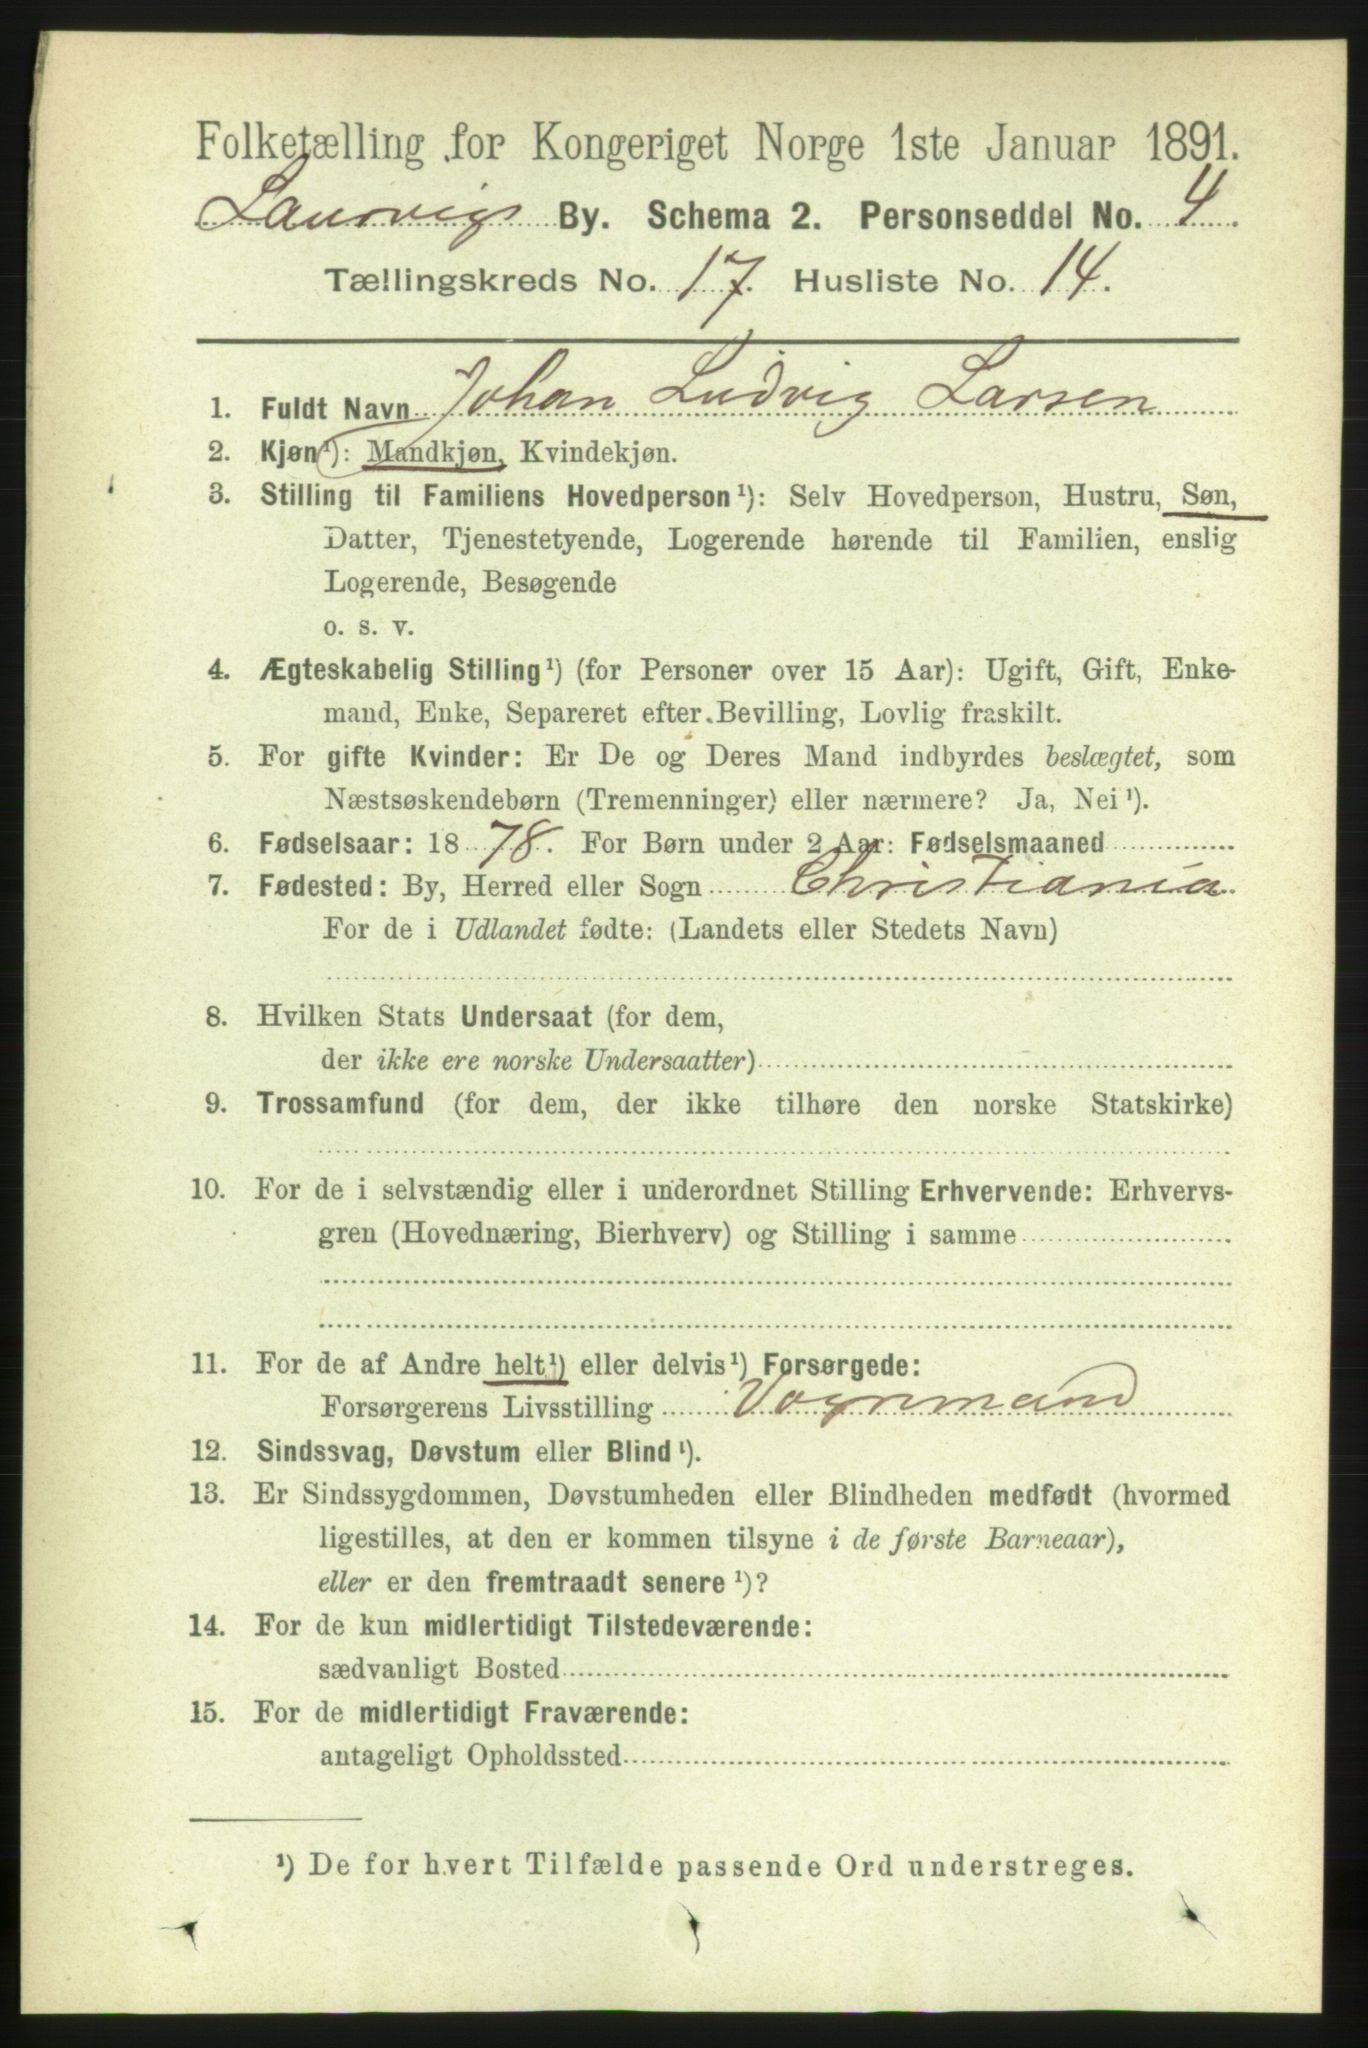 Folketælling for Kongeriget Norge 1ste Januar 1891.
Laurvigs By. Schema 2. Personseddel No. 4.
Tællingskreds No. 17. Husliste No. 14.
1. Fuldt Navn Johan Ludvig Larsen
2. Kjøn¹): Mandkjøn, Kvindekjøn.
3. Stilling til Familiens Hovedperson¹): Selv Hovedperson, Hustru, Søn,
Datter, Tjenestetyende, Logerende hørende til Familien, enslig
Logerende, Besøgende
o. s. v.
4. Ægteskabelig Stilling¹) (for Personer over 15 Aar): Ugift, Gift, Enke-
mand, Enke, Separeret efter Bevilling, Lovlig fraskilt.
5. For gifte Kvinder: Er De og Deres Mand indbyrdes beslægtet, som
Næstsøskendebørn (Tremenninger) eller nærmere? Ja, Nei¹).
6. Fødselsaar: 1878. For Børn under 2 Aar: Fødselsmaaned
7. Fødested: By, Herred eller Sogn Christiania
For de i Udlandet fødte: (Landets eller Stedets Navn)
8. Hvilken Stats Undersaat (for dem,
der ikke ere norske Undersaatter)
9. Trossamfund (for dem, der ikke tilhøre den norske Statskirke)
10. For de i selvstændig eller i underordnet Stilling Erhvervende: Erhvervs-
gren (Hovednæring, Bierhverv) og Stilling i samme
11. For de af Andre helt¹) eller delvis¹) Forsørgede:
Forsørgerens Livsstilling Vognmand
12. Sindssvag, Døvstum eller Blind¹).
13. Er Sindssygdommen, Døvstumheden eller Blindheden medfødt (hvormed
ligestilles, at den er kommen tilsyne i de første Barneaar),
eller er den fremtraadt senere¹)?
14. For de kun midlertidigt Tilstedeværende:
sædvanligt Bosted
15. For de midlertidigt Fraværende:
antageligt Opholdssted
¹) De for hvert Tilfælde passende Ord understreges.